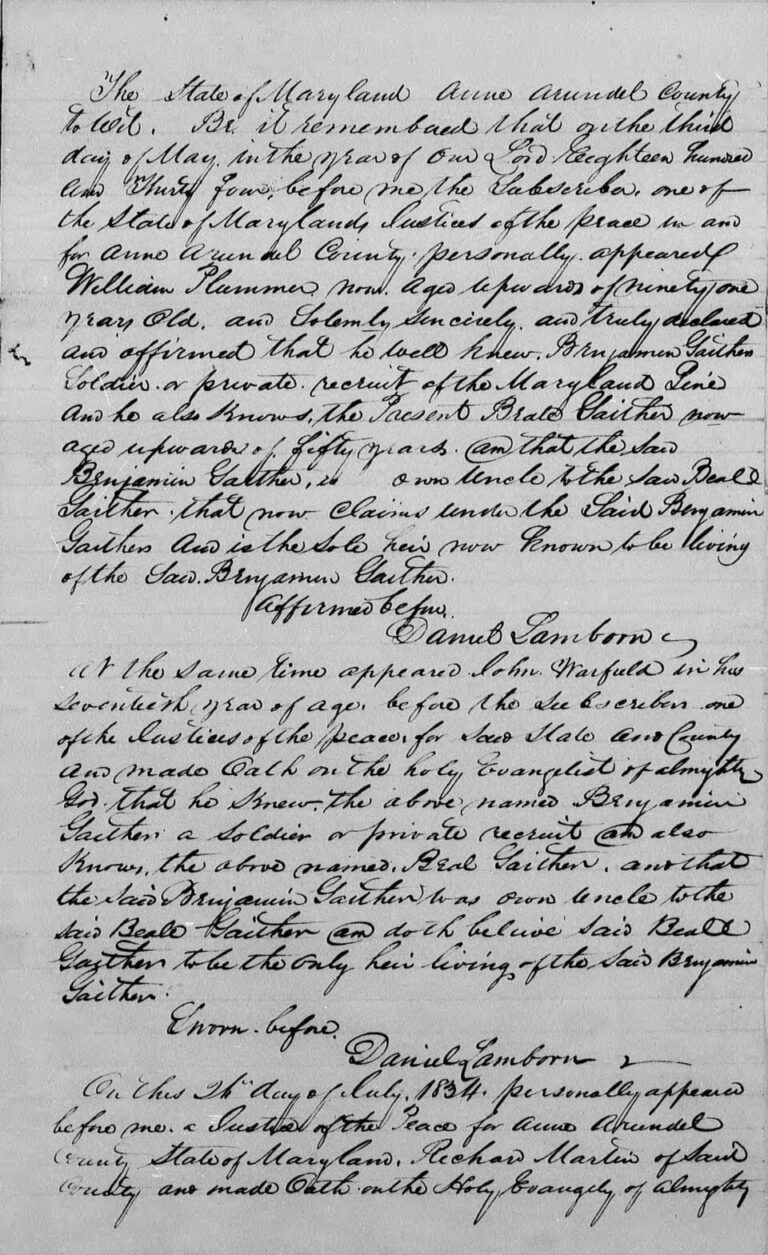 The State of Maryland Anne Arundel County
to Wit. Be it remembaed that on the third
day of May in the year of our Lord Eeghteen hundred
and Thirty four, before me the Subscriber, one of
the State of Marylands Justices of the peace in and
for Anne Arundel County. personally appeared
William Plummer now aged upwards of ninety one
years Old, and Solemly Sincirely and truly declared
and affirmed that he well knew. Benjamin Gaither
Soldier or private recruit of the Maryland Line
And he also Knows, the Present Beale Gaither now
aged upwards of fifty years. and that the Said
Benjamin Gaither, is own Uncle to the Said Beall
Gaither. that now Claims under the Said Benjamin
Gaither And is the Sole heir now Known to be living
of the Said. Benjamin Gaither.
Affirmed before.
Daniel Lamborn
At the same time appeared John. Warfield in his
seventieth year of age. before the Subscriber one
of the Justices of the peace, for Said State and County
And made Oath on the holy Evangelist of almighty
God that he Knew. the above named Benjamin
Gaither a Soldier or private recruit and also
Knows, the above named, Beal Gaither. and that
the Said Benjamin Gaither was own Uncle to the
said Beall Gaither and doth belive said Beall
Gaither to be the only heir living of the Said Benjamin
Gaither.
Sworn. before.
Daniel Lamborn
On this day of July. 1834. personally appeared
before me. a Justice of the Peace for Anne Arundel
County State of Maryland, Richard Martin of Said
County and made Oath on the Holy Evangely of almighty